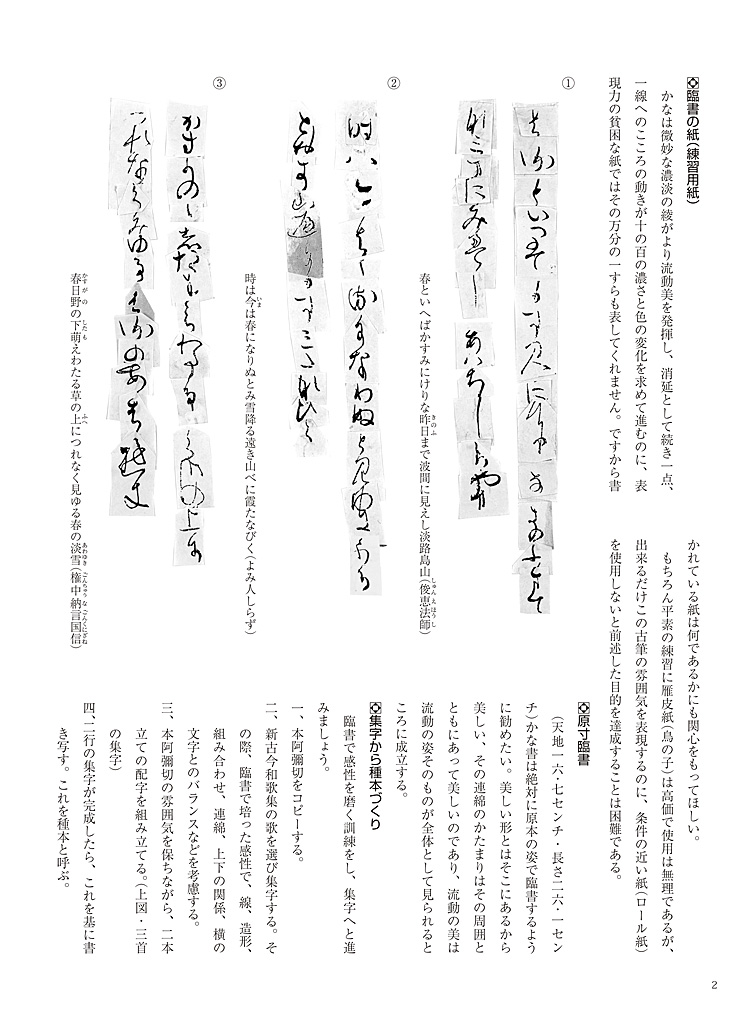 臨書の紙(練習用紙)
かなは微妙な濃淡の綾がより流動美を発揮し、消延として続き一点、
一線へのこころの動きが十の百の濃さと色の変化を求めて進むのに、表
現力の貧困な紙ではその万分の一すらも表してくれません。ですから書
かれている紙は何であるかにも関心をもってほしい。
もちろん平素の練習に雁皮紙(鳥の子)は高価で使用は無理であるが、
出来るだけこの古筆の雰囲気を表現するのに、条件の近い紙(ロール紙)
を使用しないと前述した目的を達成することは困難である。
①
春といへばかすみにけりな昨日まで波間に見えし淡路島山(俊恵法師)
②
時は今は春になりぬとみ雪降る遠き山べに霞たなびく(よみ人しらず)
③
春日野の下萌えわたる草の上につれなく見ゆる春の淡雪(権中納言国信)
原寸臨書
(天地一六・七センチ・長さ二六・一セン
チ)かな書は絶対に原本の姿で臨書するよう
に勧めたい。美しい形とはそこにあるから
美しい、その連綿のかたまりはその周囲と
ともにあって美しいのであり、流動の美は
流動の姿そのものが全体として見られると
ころに成立する。
集字から種本づくり
臨書で感性を磨く訓練をし、集字へと進
みましょう。
一、本阿彌切をコピーする。
二、新古今和歌集の歌を選び集字する。そ
の際、臨書で培った感性で、線、造形、
組み合わせ、連綿、上下の関係、横の
文字とのバランスなどを考慮する。
三、本阿彌切の雰囲気を保ちながら、二本
立ての配字を組み立てる。(上図・三首
の集字)
四、二行の集字が完成したら、これを基に書
き写す。これを種本と呼ぶ。
2